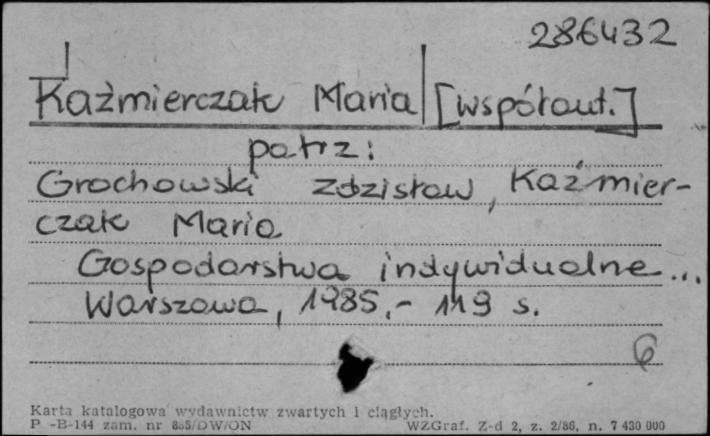 286432
Kaźmierczak Maria [współaut.]
patrz:
Grochowski Zdzisław, Kaźmier-
czak Maria
Gospodarstwa indywidualne...
Warszawa, 1985.- 119 s.
6
Karta katalogowa wydawnictw zwartych i ciągłych.
P -B-144 zam. nr 835/DW/ON WZGraf. Z-d 2, z. 2/86, n. 7 430 000